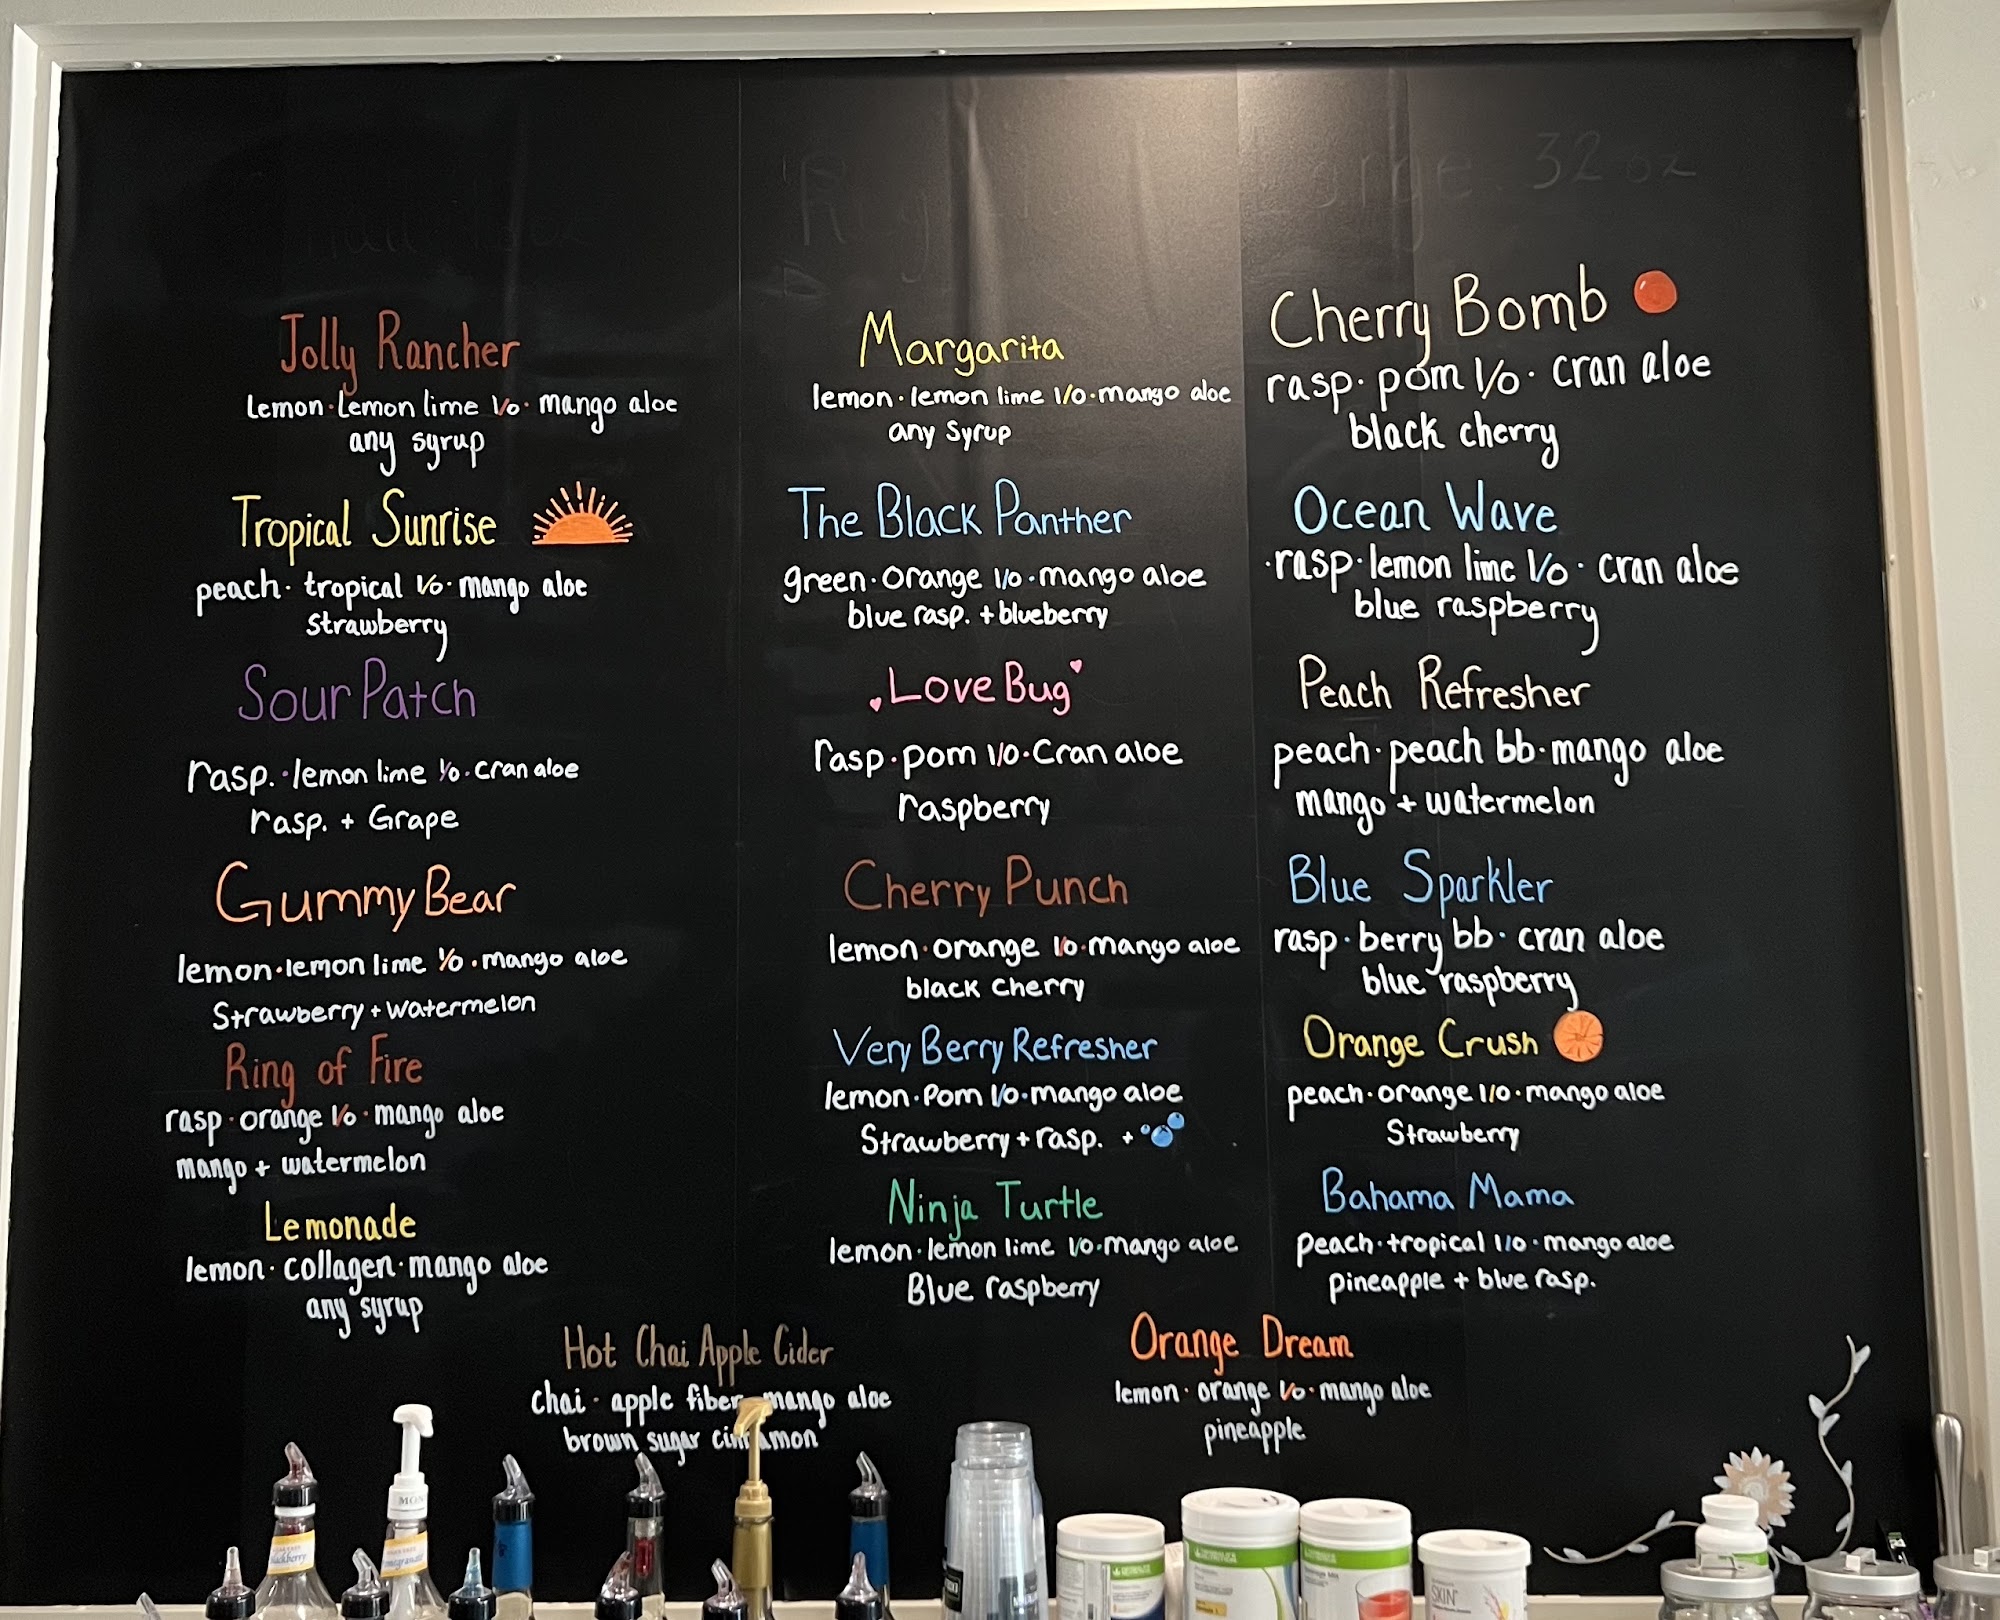 32 oz
Jolly Rancher
Lemon · Lemon lime l/o · mango aloe
any syrup
Tropical Sunrise
peach · tropical l/o · mango aloe
strawberry
Sour Patch
rasp. · lemon lime l/o · cran aloe
rasp. + Grape
Gummy Bear
lemon · lemon lime l/o · mango aloe
Strawberry + watermelon
Ring of Fire
rasp · orange l/o · mango aloe
mango + watermelon
Lemonade
lemon · collagen · mango aloe
any syrup
Margarita
lemon · lemon lime l/o · mango aloe
any Syrup
The Black Panther
green · orange l/o · mango aloe
blue rasp. + blueberry
Love Bug
rasp · pom l/o · Cran aloe
raspberry
Cherry Punch
lemon · orange l/o · mango aloe
black cherry
Very Berry Refresher
lemon · Pom l/o · mango aloe
Strawberry + rasp. +
Ninja Turtle
lemon · lemon lime l/o · mango aloe
Blue raspberry
Cherry Bomb
rasp · pom l/o · cran aloe
black cherry
Ocean Wave
· rasp · lemon lime l/o · cran aloe
blue raspberry
Peach Refresher
peach · peach bb · mango aloe
mango + watermelon
Blue Sparkler
rasp · berry bb · cran aloe
blue raspberry
Orange Crush
peach · orange l/o · mango aloe
Strawberry
Bahama Mama
peach · tropical l/o · mango aloe
pineapple + blue rasp.
Hot Chai Apple Cider
chai · apple fiber mango aloe
brown sugar cinnamon
Orange Dream
lemon · orange l/o · mango aloe
pineapple
SKIN